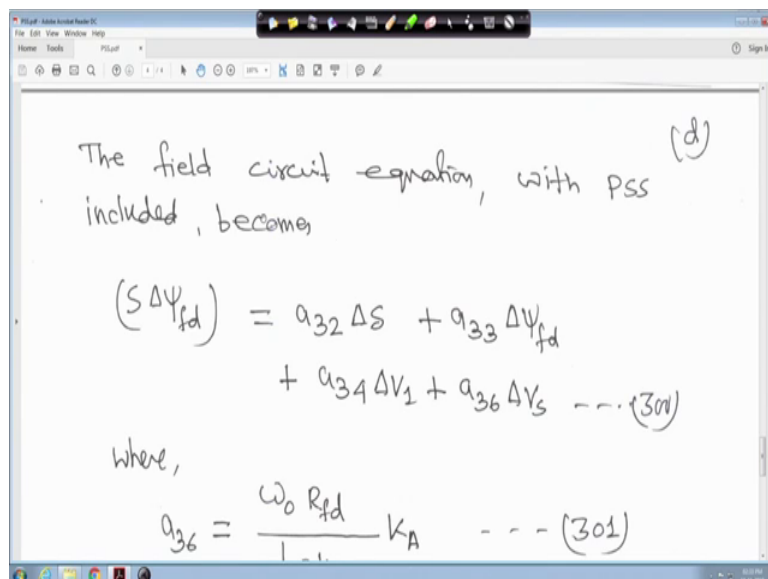 PSS.pdf - Adobe Acrobat Reader DC
File Edit View Window Help
Home Tools PSS.pdf × Sign In
(d)
The field circuit equation, with PSS
included, becomes
(SΔΨfd) = a32 Δδ + a33 ΔΨfd
+ a34 ΔV1 + a36 ΔVs ---- (300)
where,
a36 = ω0 Rfd / KA ---- (301)